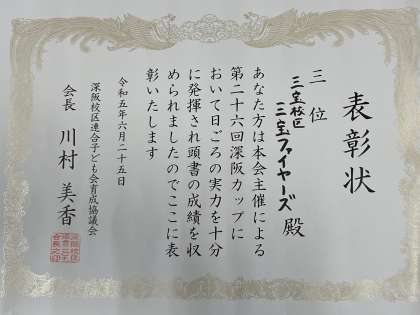 表彰状
三位
三宝校区
三宝ファイヤーズ 殿
あなた方は本会主催による
第二十六回深阪カップに
おいて日ごろの実力を十分
に発揮され頭書の成績を収
められましたのでここに表
彰いたします
令和五年六月二十五日
深阪校区連合子ども会育成協議会
会長 川村美香